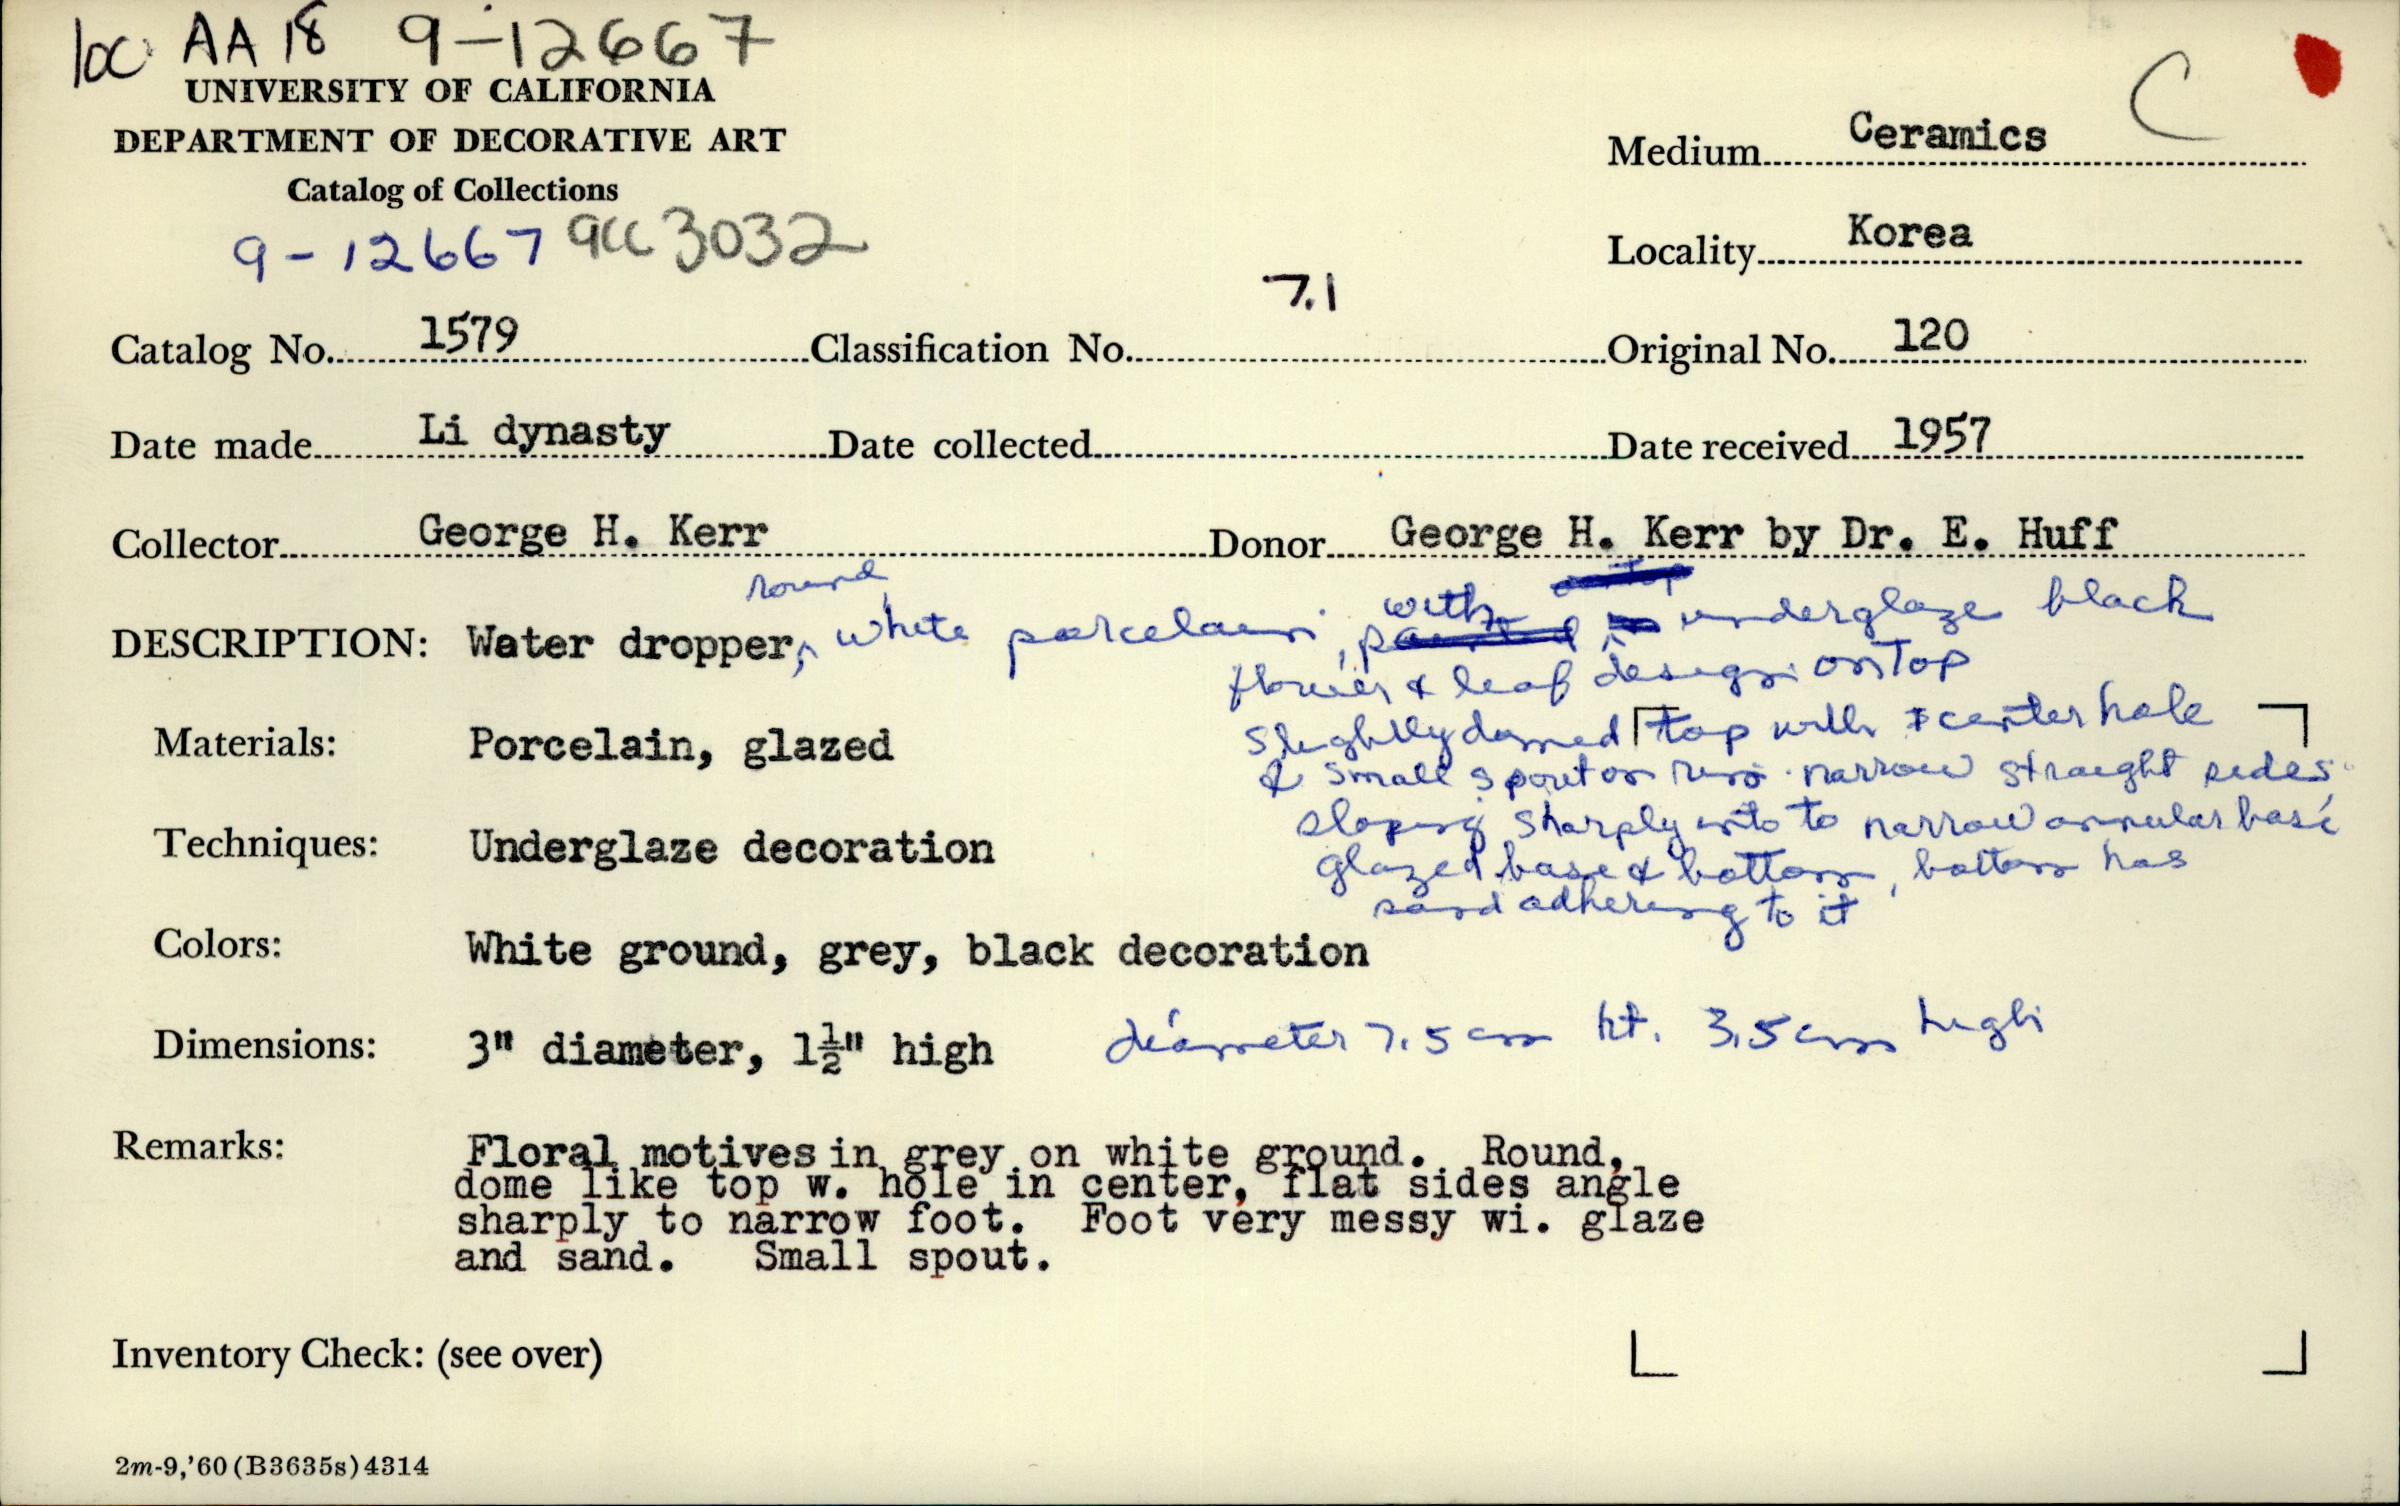 loc AA 18 9-12667
UNIVERSITY OF CALIFORNIA
DEPARTMENT OF DECORATIVE ART
Catalog of Collections
9-12667 acc 3032
C
Medium Ceramics
Locality Korea
7.1
Catalog No. 1579 Classification No. Original No. 120
Date made Li dynasty Date collected Date received 1957
Collector George H. Kerr Donor George H. Kerr by Dr. E. Huff
round,
DESCRIPTION: Water dropper, white porcelain, with underglaze black
flower & leaf design on top
slightly domed top with center hole
& small spout on rim. narrow straight sides
sloping sharply into to narrow annular base
glazed base & bottom, bottom has
sand adhering to it
Materials: Porcelain, glazed
Techniques: Underglaze decoration
Colors: White ground, grey, black decoration
Dimensions: 3" diameter, 1½" high diameter 7.5 cm ht. 3.5 cm high
Remarks: Floral motives in grey on white ground. Round,
dome like top w. hole in center, flat sides angle
sharply to narrow foot. Foot very messy wi. glaze
and sand. Small spout.
Inventory Check: (see over)
2m-9,'60(B3635s)4314